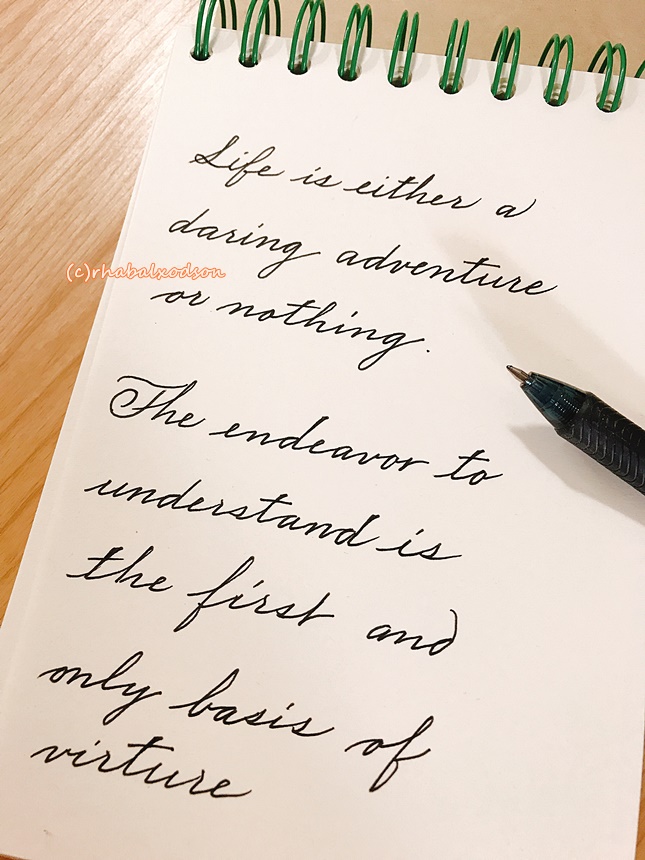 Life is either a
daring adventure
(c)rhabalxodson
or nothing.
The endeavor to
understand is
the first and
only basis of
virture